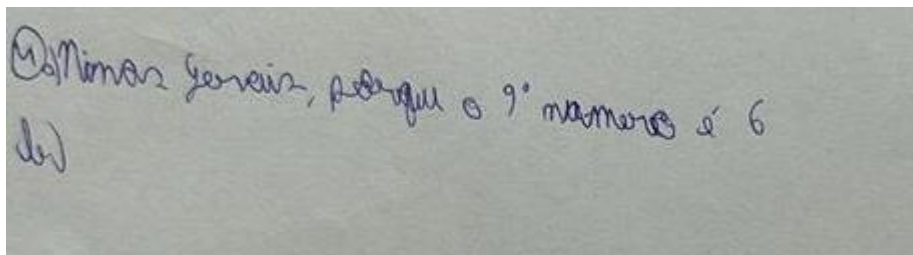 4)a) Minas Gerais, porque o 9° número é 6
b)